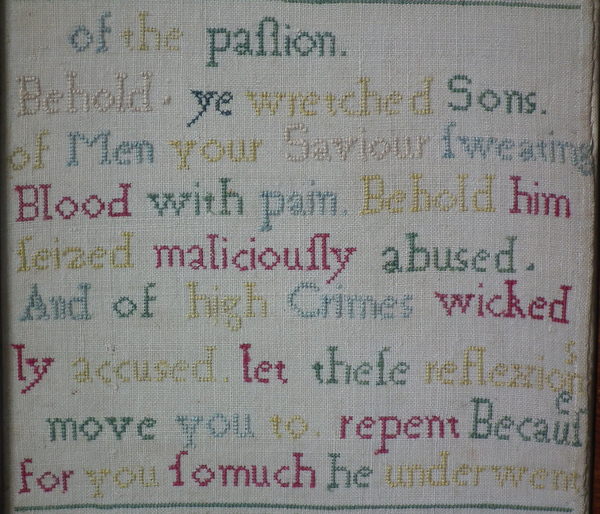 of the paſſion.
Behold. ye wretched Sons.
of Men your Saviour ſweating
Blood with pain. Behold him
ſeized maliciouſly abused.
And of high Crimes wicked
ly accused. let theſe reflexions
move you to. repent Becauſe
for you ſomuch he underwent